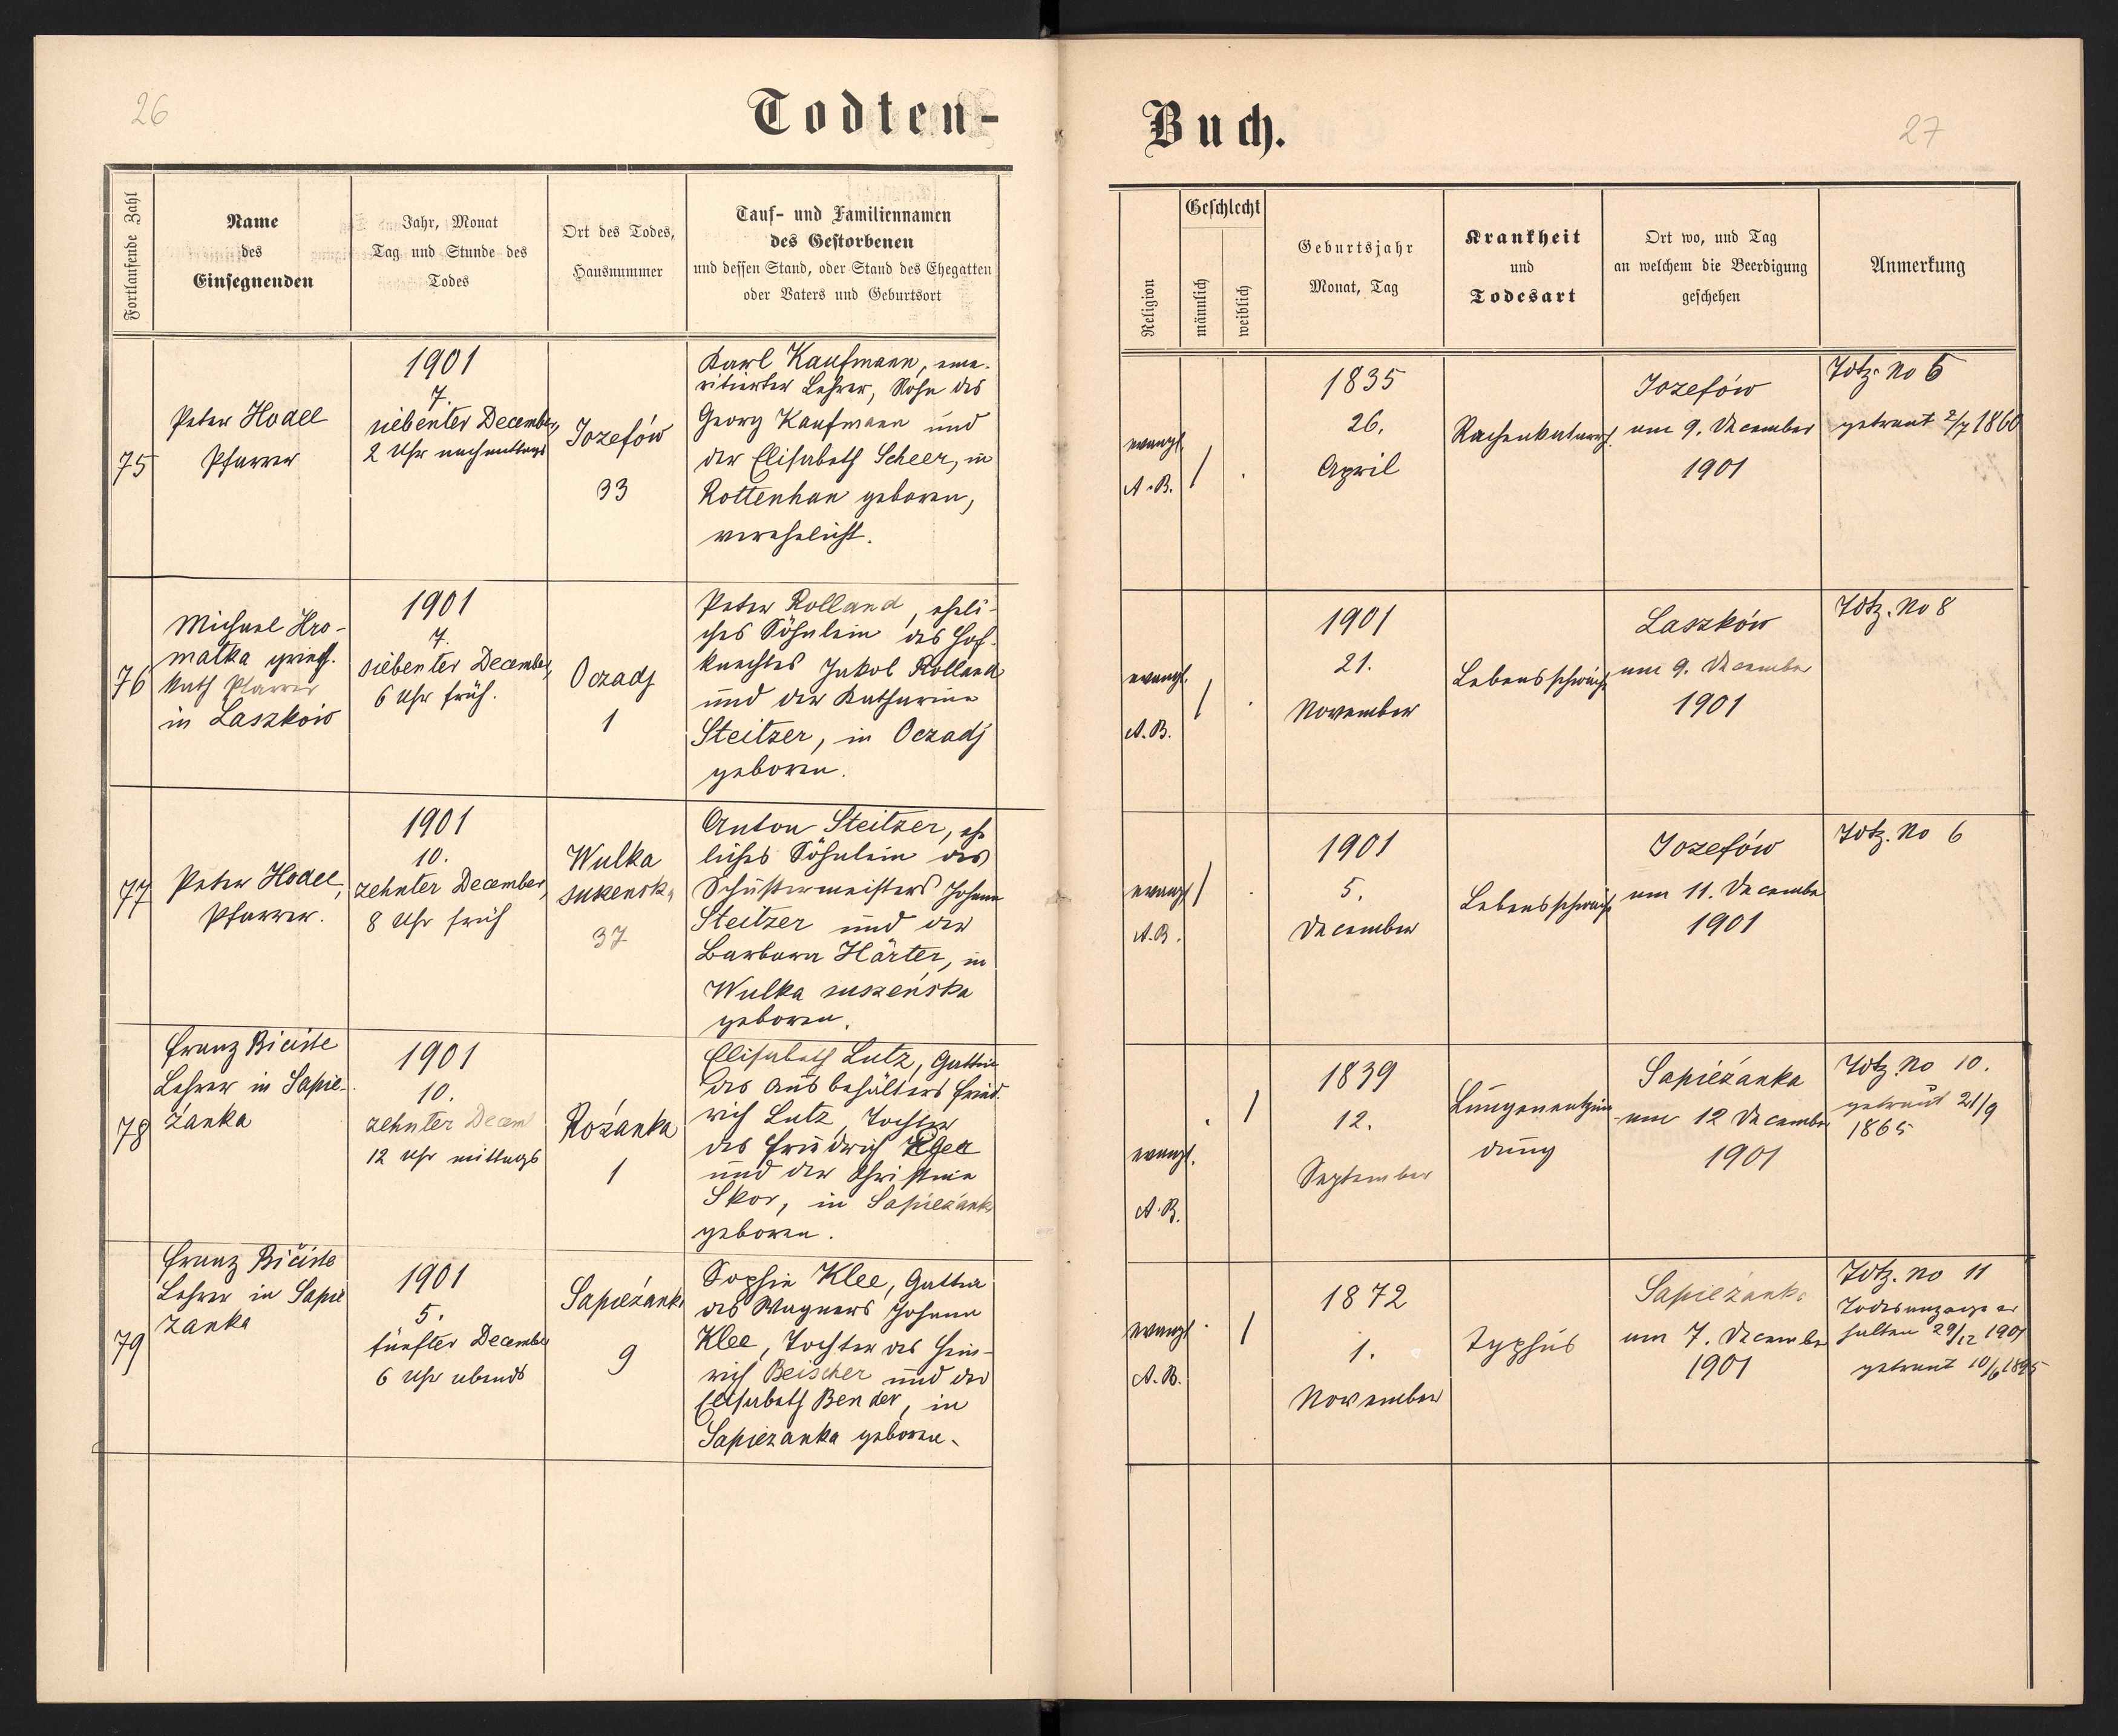 26
Todten-
Fortlaufende Zahl
Name
des
Einsegnenden
Jahr, Monat
Tag und Stunde des
Todes
Ort des Todes,
Hausnummer
Tauf- und Familiennamen
des Gestorbenen
und dessen Stand, oder Stand des Ehegatten
oder Vaters und Geburtsort
75
Peter Hodel
Pfarrer
1901
7.
siebenter December,
2 Uhr nachmittags
Jozefów
33
Karl Kaufmann, eme-
ritierter Lehrer, Sohn des
Georg Kaufmann und
der Elisabeth Scheer, in
Rottenhan geboren,
verehelicht.
76
Michael Hro-
matka griech.
kath Pfarrer
in Laszków
1901
7.
siebenter December,
6 Uhr früh.
Oczadj
1
Peter Rolland, eheli-
ches Söhnlein des Hof-
knechtes Jakob Rolland
und der Katharina
Steitzer, in Oczadj
geboren.
77
Peter Hodel,
Pfarrer.
1901
10.
zehnter December,
8 Uhr früh
Wulka
37
Anton Steitzer, ehe
liches Söhnlein des
Schustermeisters Johann
Steitzer und der
Barbara Härter, in
Wulka suszeńska
geboren.
78
Franz
Lehrer in Sapie-
żanka
1901
10.
zehnter Decem
12 Uhr mittags
Rożanka
1
Elisabeth Lutz, Gattin
des Ausbehälters Fried
rich Lutz, Tochter
des Friedrich
und der Christina
Skor, in Sapieżanka
geboren.
79
Franz
Lehrer in Sapie
zanka
1901
5.
fünfter December
6 Uhr abends
Sapieżanka
9
Sophie Klee, Gattin
des Wagners Johann
Klee, Tochter des Hein-
rich Beischer und der
Elisabeth Bender, in
Sapiezanka geboren.
Buch.
27
Religion
Geschlecht
männlich
weiblich
Geburtsjahr
Monat, Tag
Krankheit
und
Todesart
Ort wo, und Tag
an welchem die Beerdigung
geschehen
Anmerkung
evangl.
A.B.
/
.
1835
26.
April
Rachenkatarrh
Jozefów
am 9. December
1901
Totz. No 5
getraut 2/7 1860
evangl.
A.B.
/
.
1901
21.
November
Lebensschwäche
Laszków
am 9. December
1901
Totz. No 8
evangl
A.B.
/
.
1901
5.
December
Lebensschwäche
Jozefów
am 11. Decembe
1901
Totz. No 6
evangl.
A.B.
.
/
1839
12.
September
Lungenentzün
dung
Sapieżanka
am 12 December
1901
Totz. No 10.
getraut 21/9
1865
evangl
A.B.
.
/
1872
1.
November
Typhus
Sapieżanka
am 7. Decembe
1901
Totz. No 11
Todesanzeige er
halten 29/12 1901
getraut 10/6 1895